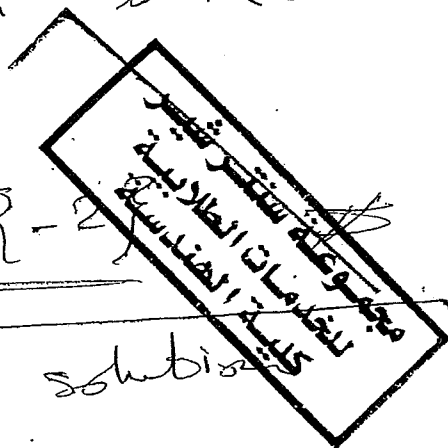 مجموعة سنتر شير
للخدمات الطلابية
كلية الهندسة
solution